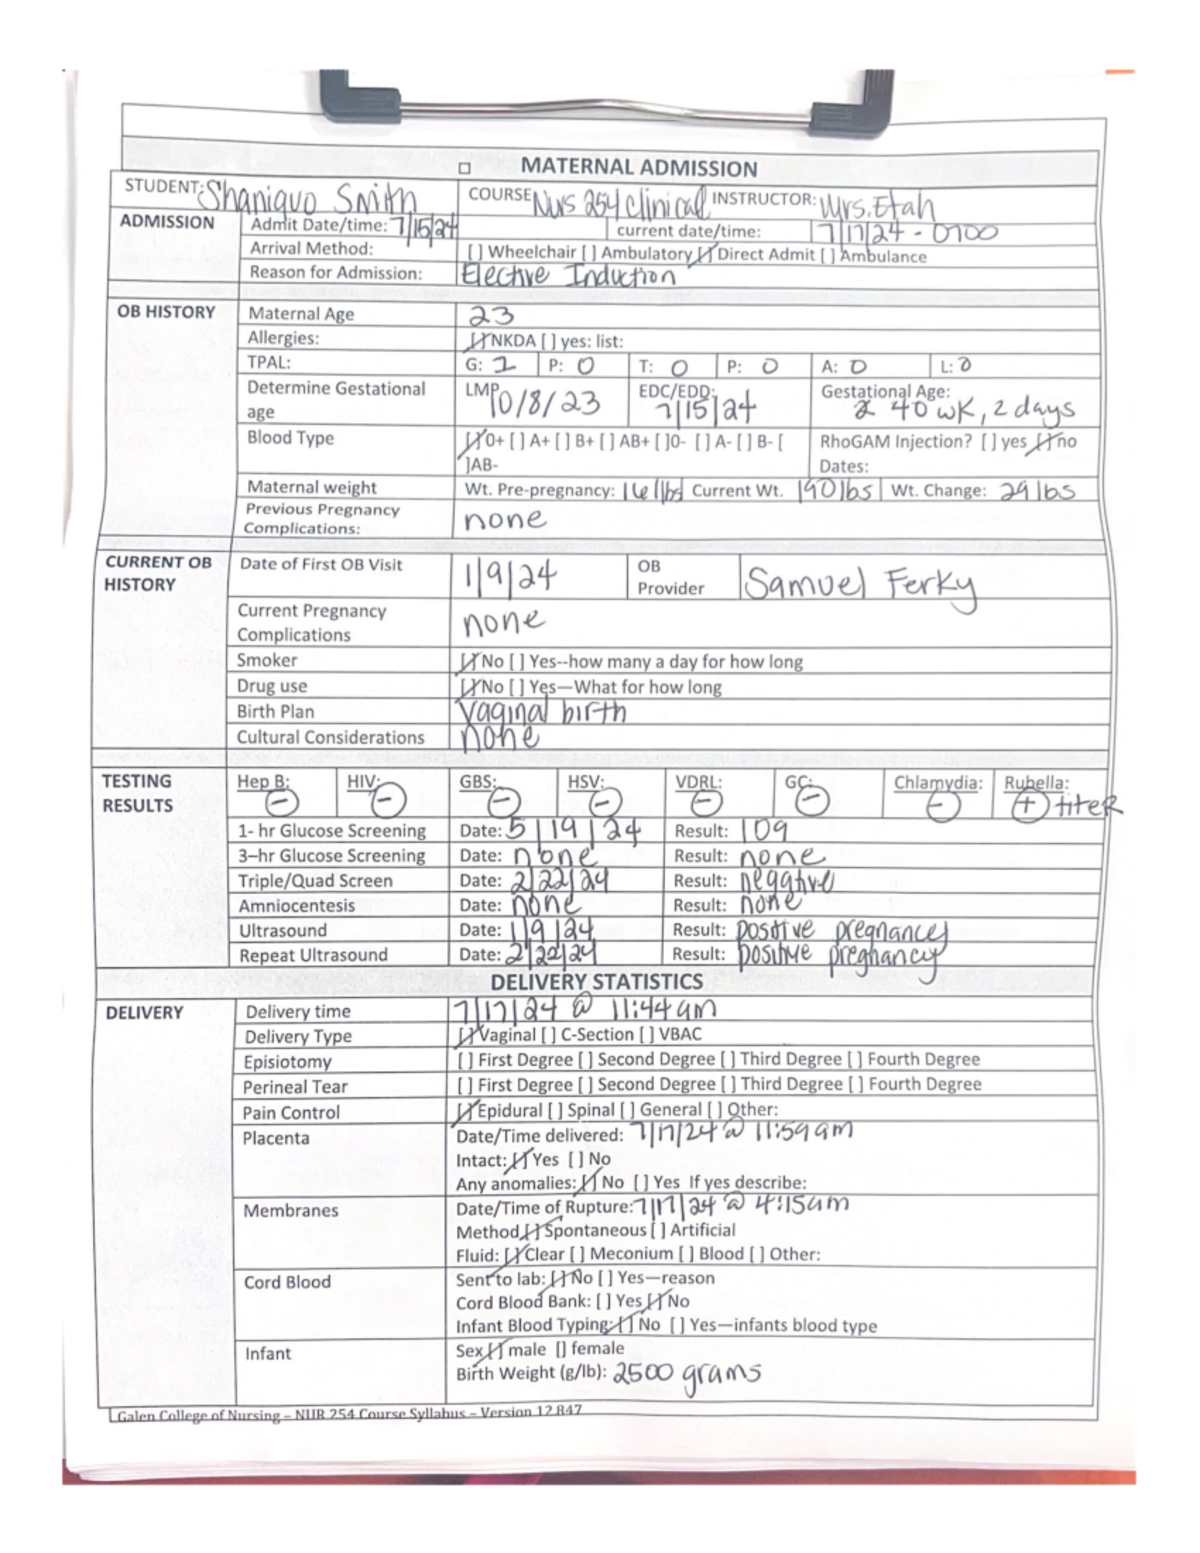 MATERNAL ADMISSION
STUDENT: Shaniquo Smith COURSE Nurs 254 Clinical INSTRUCTOR: Mrs. Etah
ADMISSION Admit Date/time: 7/15/24 current date/time: 7/17/24 - 0700
Arrival Method: [ ] Wheelchair [ ] Ambulatory [/] Direct Admit [ ] Ambulance
Reason for Admission: Elective Induction
OB HISTORY Maternal Age 23
Allergies: [/] NKDA [ ] yes: list:
TPAL: G: 1 P: 0 T: 0 P: 0 A: 0 L: 0
Determine Gestational age LMP 10/8/23 EDC/EDD: 7/15/24 Gestational Age: 40 wk, 2 days
Blood Type [/] O+ [ ] A+ [ ] B+ [ ] AB+ [ ]O- [ ] A- [ ] B- [ ]AB- RhoGAM Injection? [ ] yes [/] no Dates:
Maternal weight Wt. Pre-pregnancy: 161lbs Current Wt. 190lbs Wt. Change: 29lbs
Previous Pregnancy Complications: none
CURRENT OB HISTORY Date of First OB Visit 1/9/24 OB Provider Samuel Ferky
Current Pregnancy Complications none
Smoker [/] No [ ] Yes--how many a day for how long
Drug use [/] No [ ] Yes—What for how long
Birth Plan Vaginal birth
Cultural Considerations none
TESTING RESULTS Hep B: - HIV: - GBS: - HSV: - VDRL: - GC: - Chlamydia: - Rubella: + titer
1- hr Glucose Screening Date: 5/19/24 Result: 109
3–hr Glucose Screening Date: none Result: none
Triple/Quad Screen Date: 2/22/24 Result: negative
Amniocentesis Date: none Result: none
Ultrasound Date: 1/9/24 Result: positive pregnancy
Repeat Ultrasound Date: 2/22/24 Result: positive pregnancy
DELIVERY STATISTICS
DELIVERY Delivery time 7/17/24 @ 11:44am
Delivery Type [/] Vaginal [ ] C-Section [ ] VBAC
Episiotomy [ ] First Degree [ ] Second Degree [ ] Third Degree [ ] Fourth Degree
Perineal Tear [ ] First Degree [ ] Second Degree [ ] Third Degree [ ] Fourth Degree
Pain Control [/] Epidural [ ] Spinal [ ] General [ ] Other:
Placenta Date/Time delivered: 7/17/24 @ 11:59am
Intact: [/] Yes [ ] No
Any anomalies: [/] No [ ] Yes If yes describe:
Membranes Date/Time of Rupture: 7/17/24 @ 4:15am
Method [/] Spontaneous [ ] Artificial
Fluid: [/] Clear [ ] Meconium [ ] Blood [ ] Other:
Cord Blood Sent to lab: [/] No [ ] Yes—reason
Cord Blood Bank: [ ] Yes [/] No
Infant Blood Typing: [/] No [ ] Yes—infants blood type
Infant Sex [/] male [] female
Birth Weight (g/lb): 2500 grams
Galen College of Nursing – NUR 254 Course Syllabus – Version 12.847